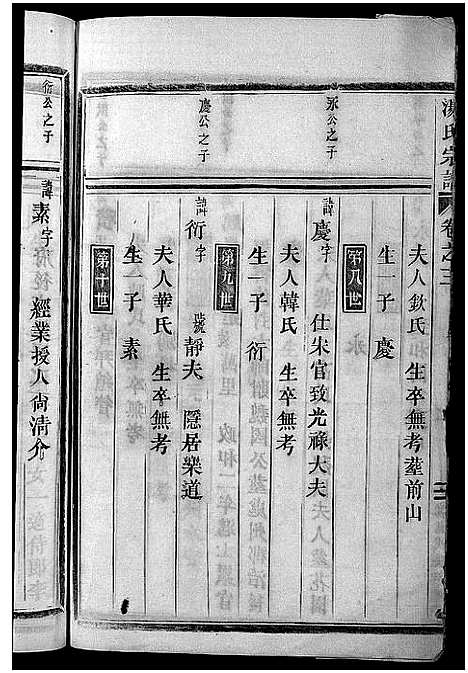 湯氏宗譜 卷之三
夫人欽氏 生卒無考塟前山
生一子 慶
第八世
永公之子
諱慶字 仕宋官致光祿大夫
夫人韓氏 生卒無考
生一子 衍
第九世
慶公之子
諱衍字 號靜夫 隱居樂道
夫人華氏 生卒無考
生一子 素
第十世
衍公之子
諱素字 經業授人尙清介